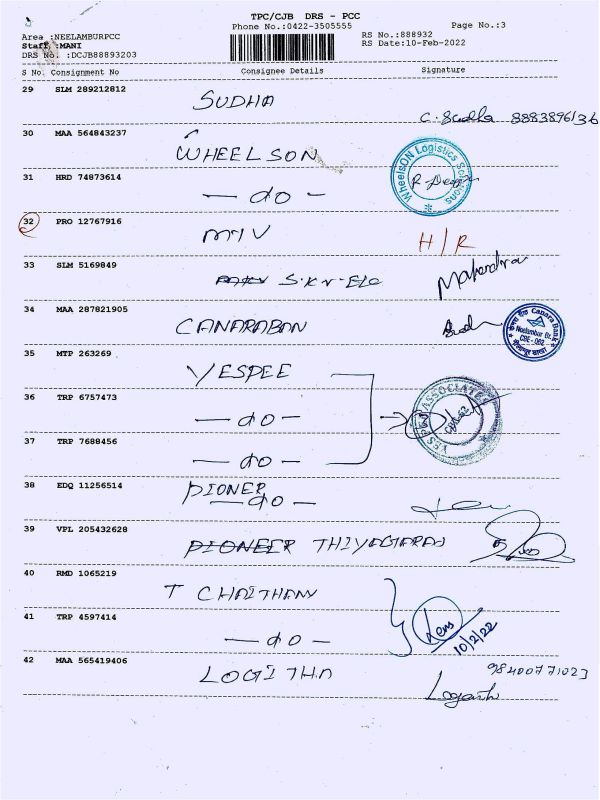 TPC/CJB DRS - PCC
Phone No.:0422-3505555
Page No.:3
Area :NEELAMBURPCC
Staff :MANI
DRS No. :DCJB88893203
RS No.:888932
RS Date:10-Feb-2022
S No. Consignment No Consignee Details Signature
29 SLM 289212812 SUDHA C. Sudha
30 MAA 564843237 WHEELSON
WheelsON Logistics Solutions
31 HRD 74873614 — do —
32 PRO 12767916 MTV H/R
33 SLM 5169849 S.K.V-ELC Mahendra
34 MAA 287821905 CANARABAN
Canara Bank
Neelambur Br.
CBE - 062
35 MTP 263269 YESPEE
36 TRP 6757473 — do —
YESPEE ASSOCIATES
37 TRP 7688456 — do —
38 EDQ 11256514 PIONER
— do —
39 VPL 205432628 PIONEER THIYAGARAJ
40 RMD 1065219 T CHAITHANY
41 TRP 4597414 — do —
10/2/22
42 MAA 565419406 LOGITHA
98400771023